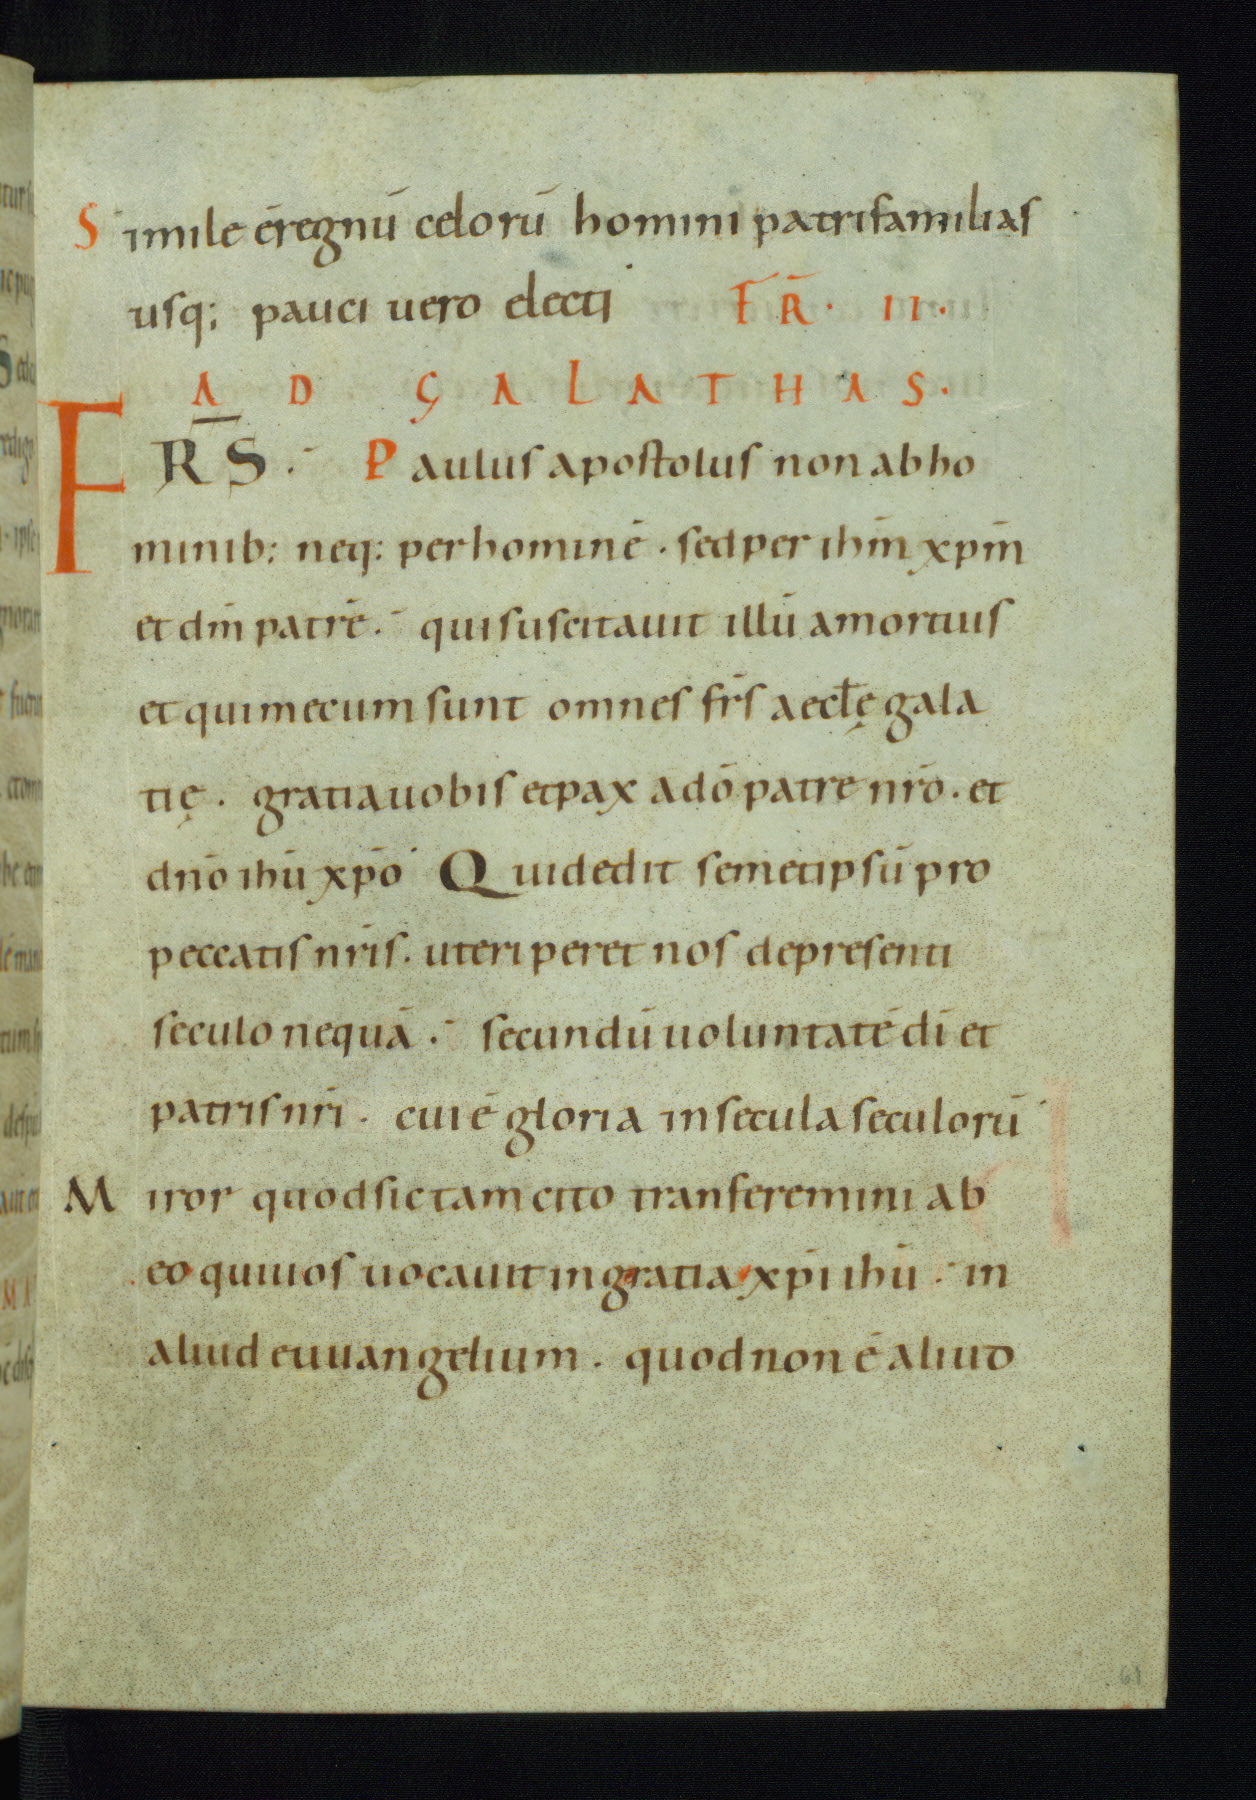 Simile ē regnū celorū homini patrifamilias
usq; pauci uero electi FR̄. II.
AD GALATHAS.
FR̄S. Paulus apostolus non ab ho
minib; neq; per hominē. sed per ihm̄ xpm̄
et dm̄ patrē. qui suscitauit illū a mortuis
et qui mecum sunt omnes frs̄ aecłę gala
tię. gratia uobis et pax a dō patre nrō. et
dnō ihū xpō Qui dedit semetipsū pro
peccatis nrīs. ut eriperet nos de presenti
seculo nequā. secundū uoluntatē dī et
patris nrī. cui ē gloria in secula seculorū
Miror quod sic tam cito transferemini ab
eo qui uos uocauit in gratia xpī ihū. in
aliud euuangelium. quod non ē aliud
61